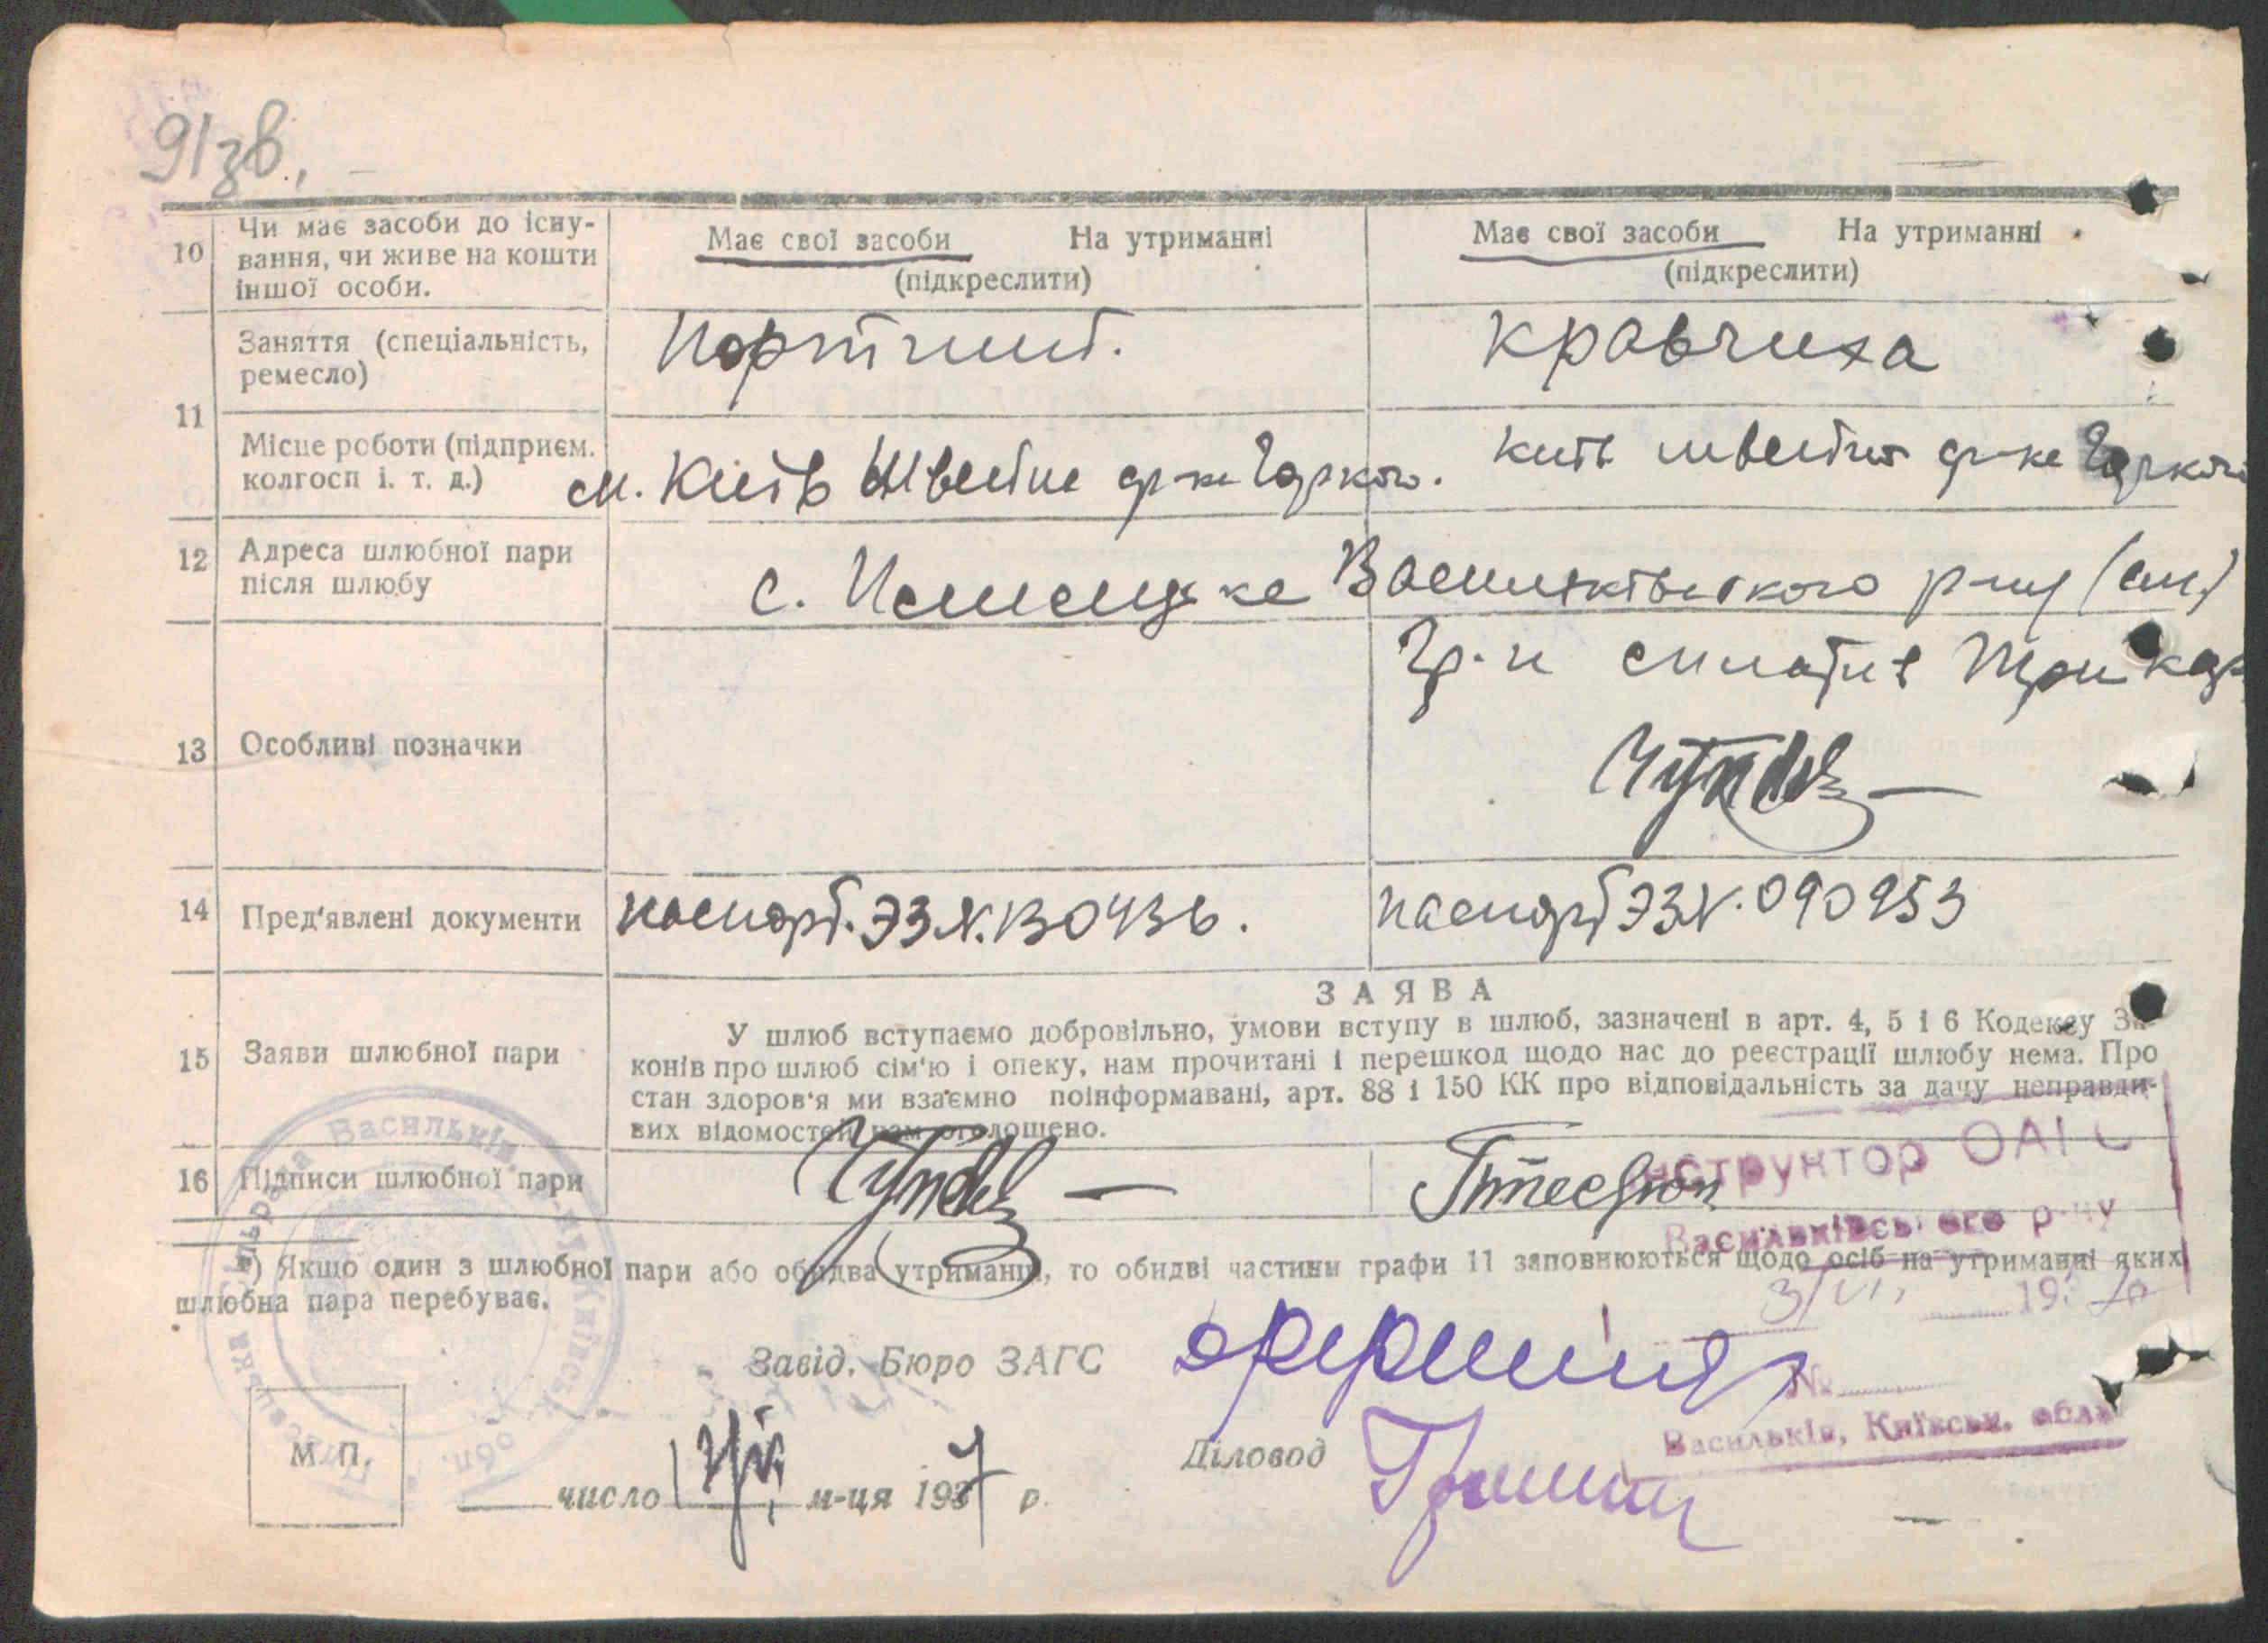 91зв.
10 Чи має засоби до існу-
вання, чи живе на кошти
іншої особи.
Має свої засоби На утриманні
(підкреслити)
Має свої засоби На утриманні
(підкреслити)
11
Заняття (спеціальність,
ремесло)
Портний.
кравчиха
Місце роботи (підприєм.
колгосп і. т. д.)
м. Київ Швейна ф-ка Горького.
Київ швейна ф-ка Горького
12 Адреса шлюбної пари
після шлюбу
с. Васильківського р-ну
13 Особливі позначки
Гр-н сплатив три
14 Пред'явлені документи
паспорт. ЭЗ N. 130436.
паспорт ЭЗ N. 090953
15 Заяви шлюбної пари
ЗАЯВА
У шлюб вступаємо добровільно, умови вступу в шлюб, зазначені в арт. 4, 5 і 6 Кодексу За-
конів про шлюб сім'ю і опеку, нам прочитані і перешкод щодо нас до реєстрації шлюбу нема. Про
стан здоров'я ми взаємно поінформавані, арт. 88 і 150 КК про відповідальність за дачу неправди-
вих відомостей нам оголошено.
16 Підписи шлюбної пари
*) Якщо один з шлюбної пари або обидва утриманці, то обидві частини графи 11 заповнюються щодо осіб на утриманні яких
шлюбна пара перебуває.
Інструктор ОАГС
Васильківського р-ну
3/VI 193
№
Васильків, Київськ. обл.
Завід. Бюро ЗАГС
М. П.
число м-ця 1937 р.
Діловод